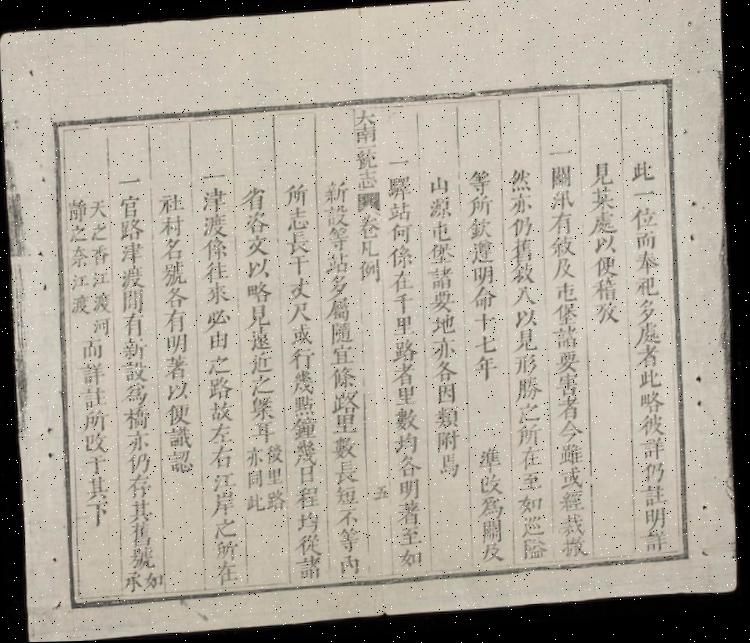 此一位而奉祀多處者此略彼詳仍註明詳
見某處以便稽攷
一關汛有敘及屯堡諸要害者今雖或經裁撤
然亦仍舊敘入以見形勝之所在至如巡隘
等所欽遵明命十七年 準改爲關及
山源屯堡諸要地亦各因類附焉
一驛站何係在千里路者里數均各明著至如
大南一統志 卷凡例 五
新設等站多屬隨宜條路里數長短不等內
所志長干丈尺或行幾點鐘幾日程均從諸
省咨文以略見遠近之槩耳後里路亦同此
一津渡係往來必由之路故左右江岸之所在
社村名號各有明著以便識認
一官路津渡間有新設爲橋亦仍存其舊號如承
天之香江渡河靜之奈江渡而詳註所改于其下